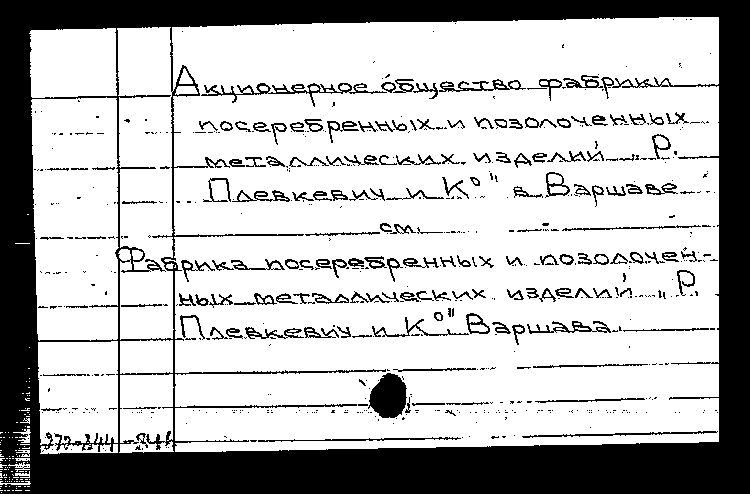 Акционерное общество фабрики
посеребренных и позолоченных
металлических изделий „Р.
Плевкевич и К⁰" в Варшаве
см.
Фабрика посеребренных и позолочен-
ных металлических изделий „Р.
Плевкевич и К⁰". Варшава.